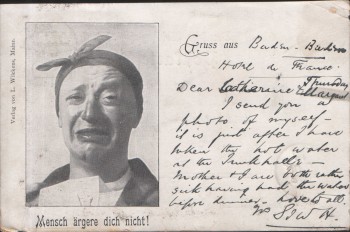 Verlag von L. Wilckens, Mainz.
Gruss aus Baden-Baden
Hotel de France.
Thursday
Dear Catharine & Margaret
I send you a
photo of myself
it is just after I have
been the hot water
at the Trinkhalle —
Mother & I are both rather
sick having had the waters
before dinner - love to all.
Mensch ärgere dich nicht!